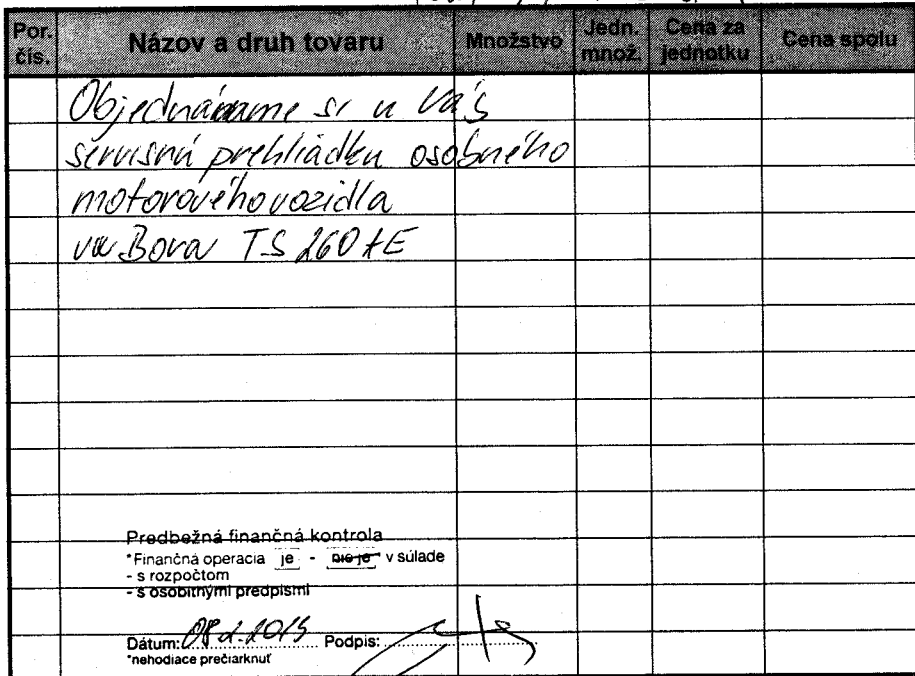 Por. čís. Názov a druh tovaru Množstvo Jedn. množ. Cena za jednotku Cena spolu
Objednávame si u Vás
servisnú prehliadku osobného
motorového vozidla
VW Bora TS 260 AE
Predbežná finančná kontrola
*Finančná operacia je - nie je v súlade
- s rozpočtom
- s osobitnými predpismi
Dátum: Podpis:
*nehodiace prečiarknuť